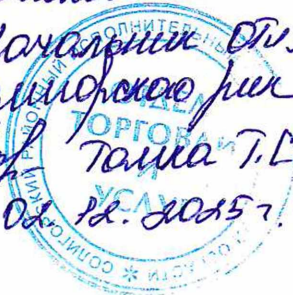 Начальник отд
Солигорского рик
Толка Т.С
02.12.2025г.
СОЛИГОРСКИЙ РАЙОННЫЙ ИСПОЛНИТЕЛЬНЫЙ
ОТДЕЛ
ТОРГОВЛИ
И
УСЛУГ